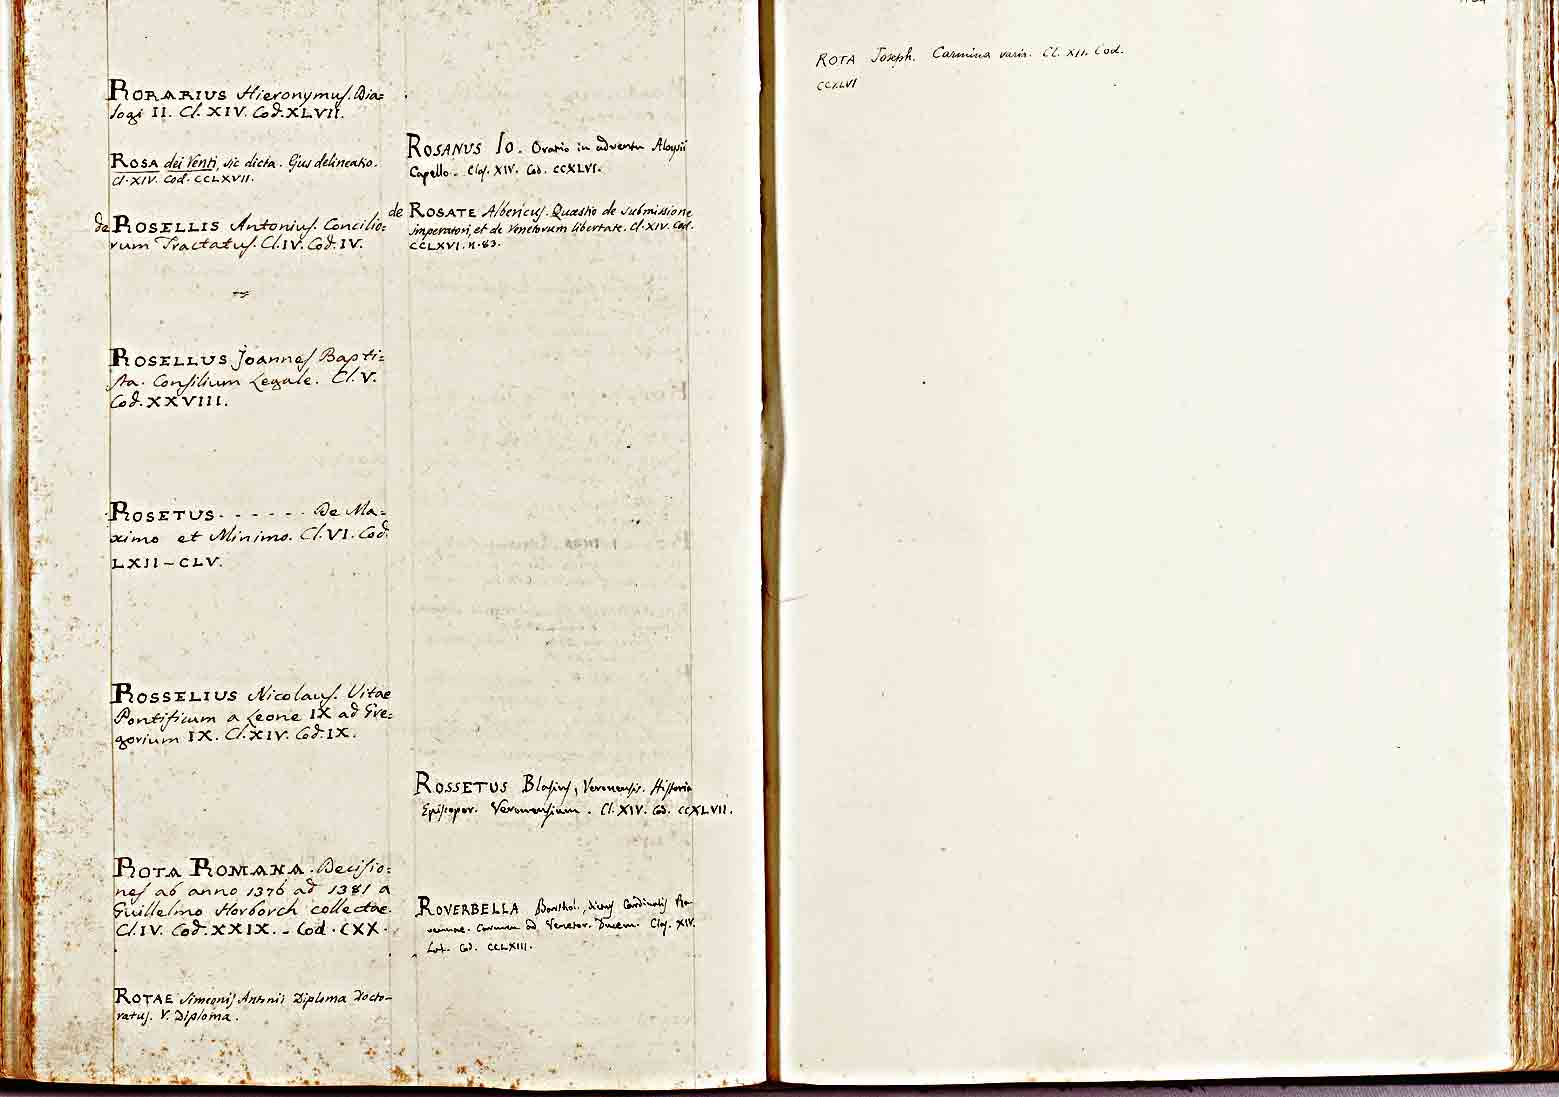 RORARIUS Hieronymus. Dia=
logi II. Cl. XIV. Cod. XLVII.
ROSA dei Venti, sic dicta. Ejus delineatio.
Cl. XIV. Cod. CCLXVII.
de ROSELLIS Antonius. Concilio=
rum Tractatus. Cl. IV. Cod. IV.
ROSELLUS Joannes Bapti=
sta. Consilium Legale. Cl. V.
Cod. XXVIII.
ROSETUS - - - - - - De Ma=
ximo et Minimo. Cl. VI. Cod.
LXII – CLV.
ROSSELIUS Nicolaus. Vitae
Pontificum a Leone IX ad Gre=
gorium IX. Cl. XIV. Cod. IX.
ROTA ROMANA. Decisio=
nes ab anno 1376 ad 1381 a
Guillelmo Horborch collectae.
Cl. IV. Cod. XXIX. – Cod. CXX.
ROTAE Simeonis Antonii Diploma Docto-
ratus. V. Diploma.
ROSANUS Io. Oratio in adventu Aloysii
Capello. Clas. XIV. Cod. CCXLVI.
de ROSATE Albericus. Quæstio de submissione
imperatori, et de Venetorum libertate. Cl. XIV. Cod.
CCLXVI. n. 83.
ROSSETUS Blasius, Veronensis. Historia
Episcopor. Veronensium. Cl. XIV. Cod. CCXLVII.
ROVERBELLA Barthol., dictus Cardinalis Ra-
vennae. Carmen ad Venetor. Ducem. Clas. XIV.
Lat. Cod. CCLXIII.
ROTA Joseph. Carmina varia. Cl. XII. Cod.
CCXLVI